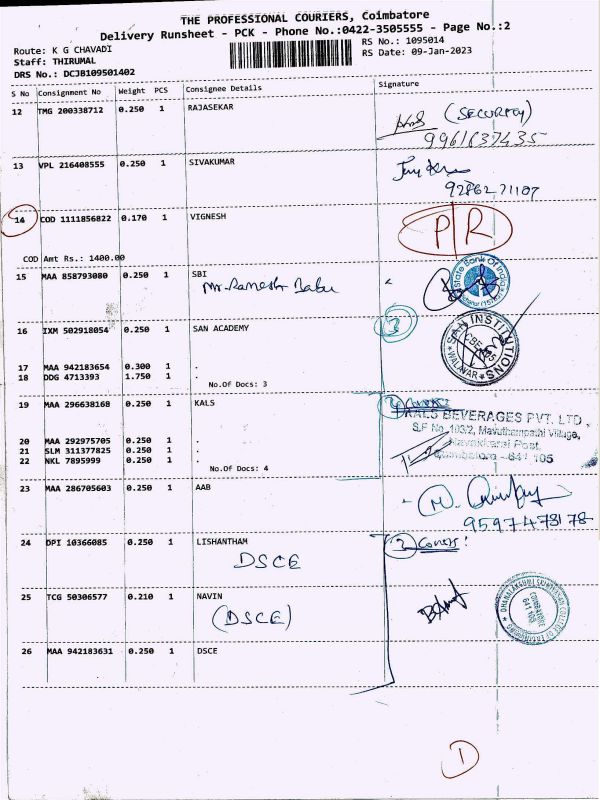 THE PROFESSIONAL COURIERS, Coimbatore
Delivery Runsheet - PCK - Phone No.:0422-3505555 - Page No.:2
Route: K G CHAVADI
RS No.: 1095014
Staff: THIRUMAL
RS Date: 09-Jan-2023
DRS No.: DCJB109501402
S No Consignment No Weight PCS Consignee Details Signature
12 TMG 200338712 0.250 1 RAJASEKAR
(SECURITY)
9961637435
13 VPL 216408555 0.250 1 SIVAKUMAR
14 COD 1111856822 0.170 1 VIGNESH
P/R
COD Amt Rs.: 1400.00
15 MAA 858793080 0.250 1 SBI
Mr. Ramesh Babu
State Bank Of India
16 IXM 502918054 0.250 1 SAN ACADEMY
3
SAN INSTITUTIONS
WALAYAR
17 MAA 942183654 0.300 1 .
18 DDG 4713393 1.750 1 .
No.Of Docs: 3
19 MAA 296638168 0.250 1 KALS
KALS BEVERAGES PVT. LTD.
S.F No. 103/2, Mavuthampathi Village,
Navakkarai Post,
Coimbatore - 641 105
20 MAA 292975705 0.250 1 .
21 SLM 311377825 0.250 1 .
22 NKL 7895999 0.250 1 .
No.Of Docs: 4
23 MAA 286705603 0.250 1 AAB
9597473178
24 DPI 10366085 0.250 1 LISHANTHAM
DSCE
Covers!
25 TCG 50306577 0.210 1 NAVIN
(DSCE)
DHANALAKSHMI SRINIVASAN COLLEGE OF ENGINEERING
COIMBATORE
641 105
26 MAA 942183631 0.250 1 DSCE
1